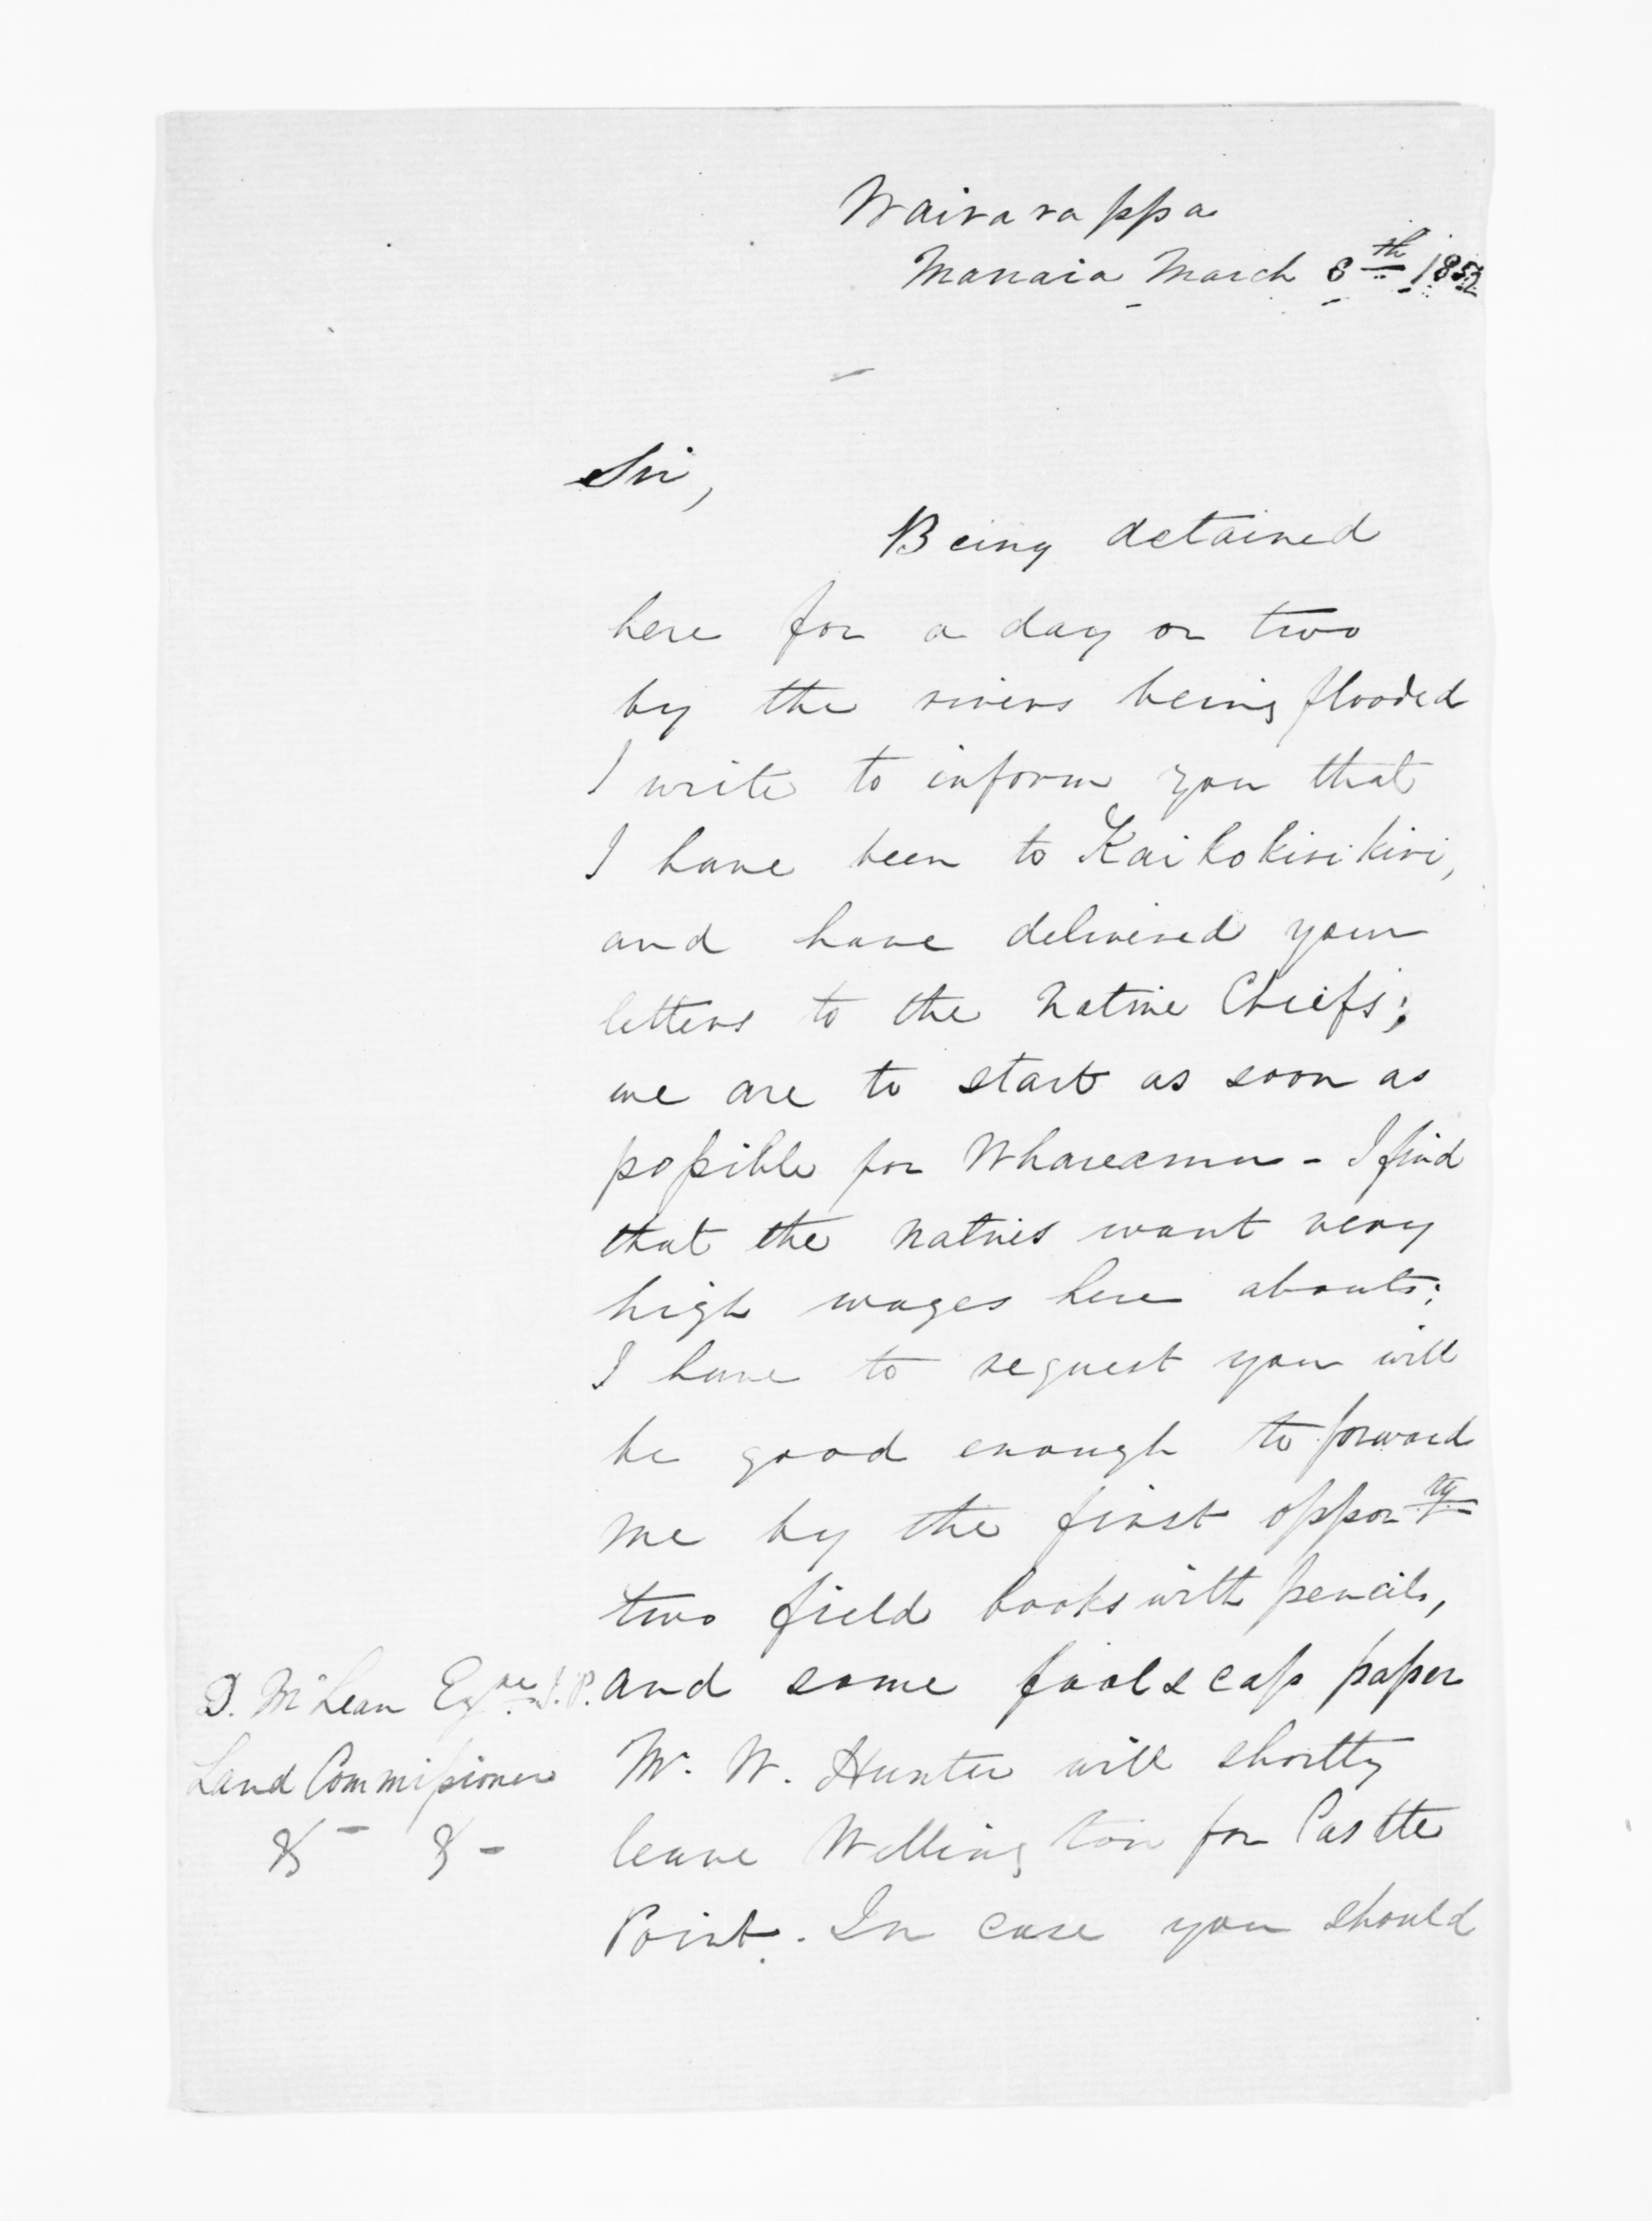 Wairarappa
Manaia March 8th 1852
Sir,
Being detained
here for a day or two
by the rivers being flooded
I write to inform you that
I have been to Kaikokirikiri,
and have delivered your
letters to the Native Chiefs;
we are to start as soon as
possible for Whareama - I find
that the natives want very
high wages here abouts;
I have to request you will
be good enough to forward
me by the first opporty
two field books with pencils,
and some foolscap paper
Mr. W. Hunter will shortly
leave Wellington for Castle
Point. In case you should
D. McLean Esqre J.P.
Land Commissioner
&- &-